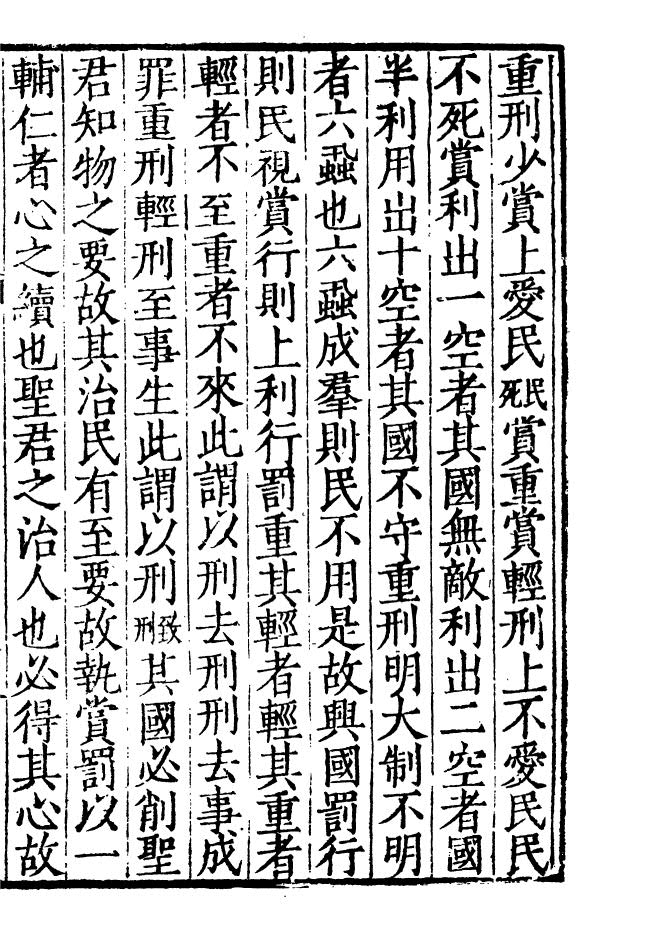 重刑少賞上愛民民死賞重賞輕刑上不愛民民
不死賞利出一空者其國無敵利出二空者國
半利用出十空者其國不守重刑明大制不明
者六蝨也六蝨成羣則民不用是故興國罰行
則民視賞行則上利行罰重其輕者輕其重者
輕者不至重者不來此謂以刑去刑刑去事成
罪重刑輕刑至事生此謂以刑致刑其國必削聖
君知物之要故其治民有至要故執賞罰以一
輔仁者心之續也聖君之治人也必得其心故